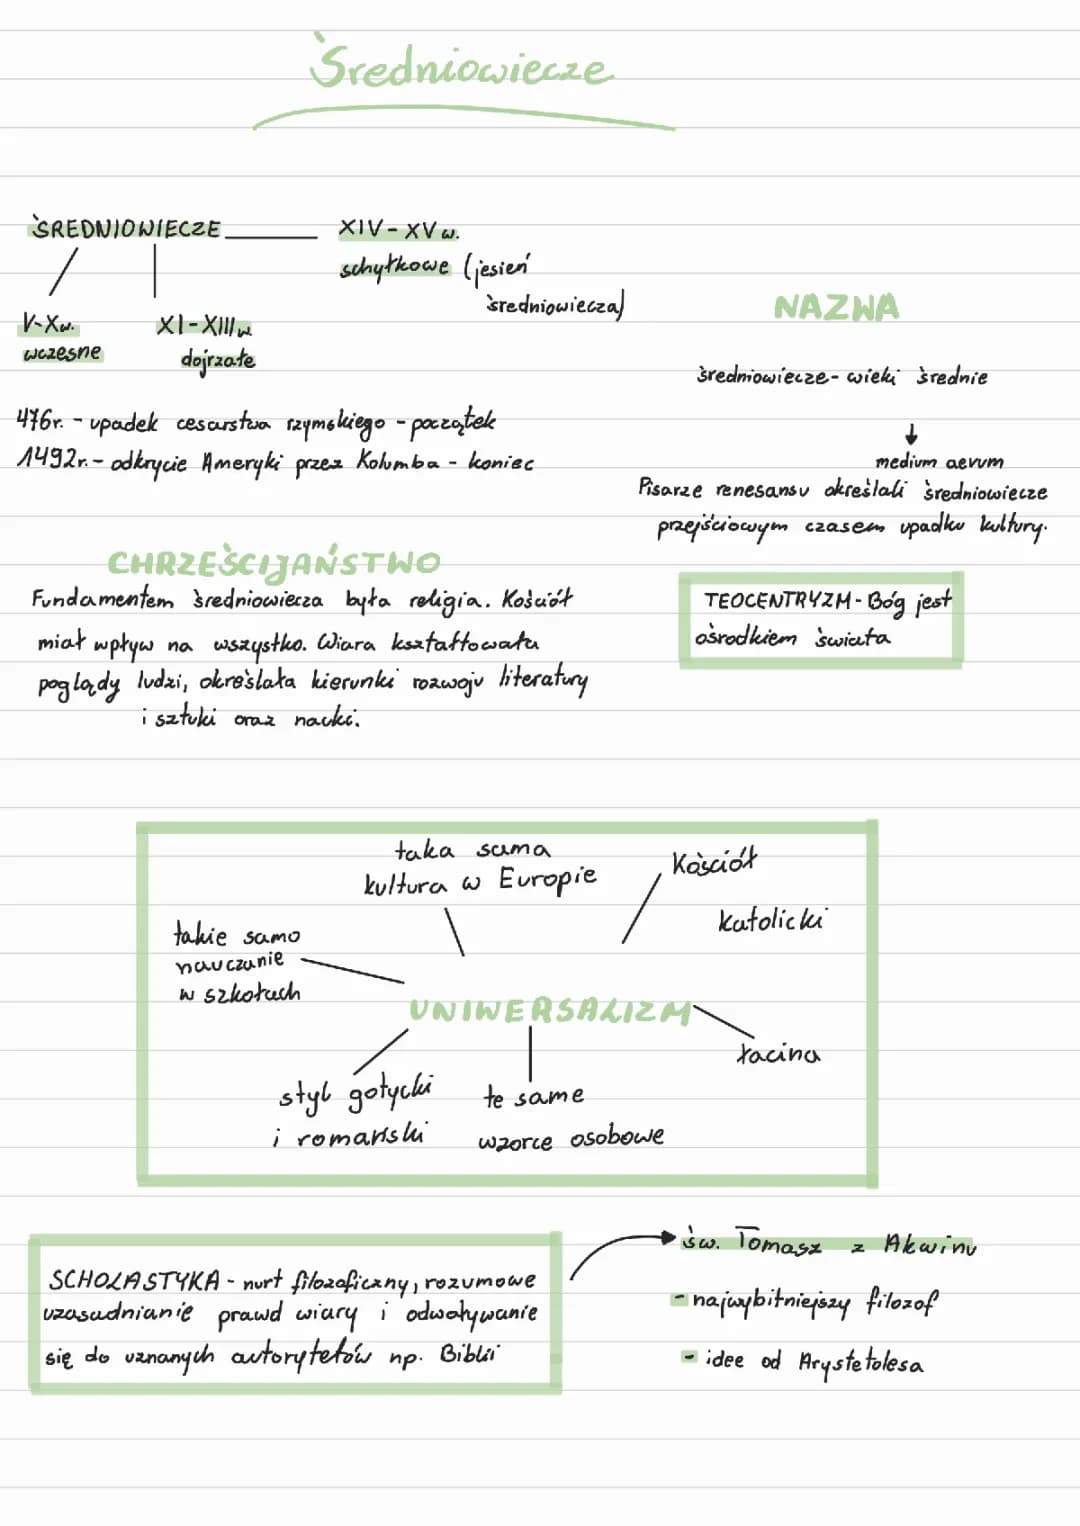 Średniowiecze
ŚREDNIOWIECZE
XIV - XV w.
schyłkowe (jesień
średniowiecza)
V-Xw.
wczesne
XI-XIII w
dojrzałe
NAZWA
średniowiecze- wieki średnie
medium aevum
Pisarze renesansu określali średniowiecze
przejściowym czasem upadku kultury.
476r. - upadek cesarstwa rzymskiego - początek
1492r. - odkrycie Ameryki przez Kolumba - koniec
CHRZEŚCIJAŃSTWO
Fundamentem średniowiecza była religia. Kościół
miał wpływ na wszystko. Wiara kształtowała
poglądy ludzi, określała kierunki rozwoju literatury
i sztuki oraz nauki.
TEOCENTRYZM - Bóg jest
ośrodkiem świata
taka sama
kultura w Europie
Kościół
katolicki
takie samo
nauczanie
w szkołach
UNIWERSALIZM
łacina
styl gotycki
i romański
te same
wzorce osobowe
SCHOLASTYKA - nurt filozoficzny, rozumowe
uzasadnianie prawd wiary i odwoływanie
się do uznanych autorytetów np. Biblii
św. Tomasz z Akwinu
- najwybitniejszy filozof
- idee od Arystetolesa